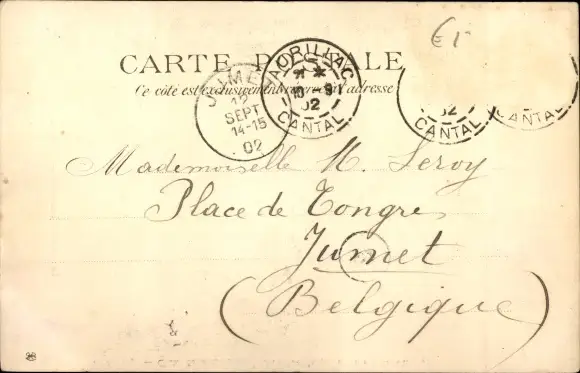 €5
CARTE POSTALE
Ce côté est exclusivement réservé à l'adresse
JUMET
12
SEPT
14-15
02
AURILLAC
10 -9
02
CANTAL
02
CANTAL
CANTAL
Mademoiselle M. Leroy
Place de Tongres
Jumet
(Belgique)